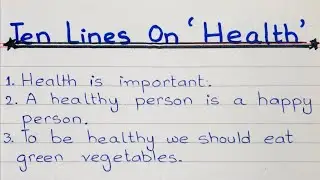 Ten Lines On 'Health'
1. Health is important.
2. A healthy person is a happy
person.
3. To be healthy we should eat
green vegetables.